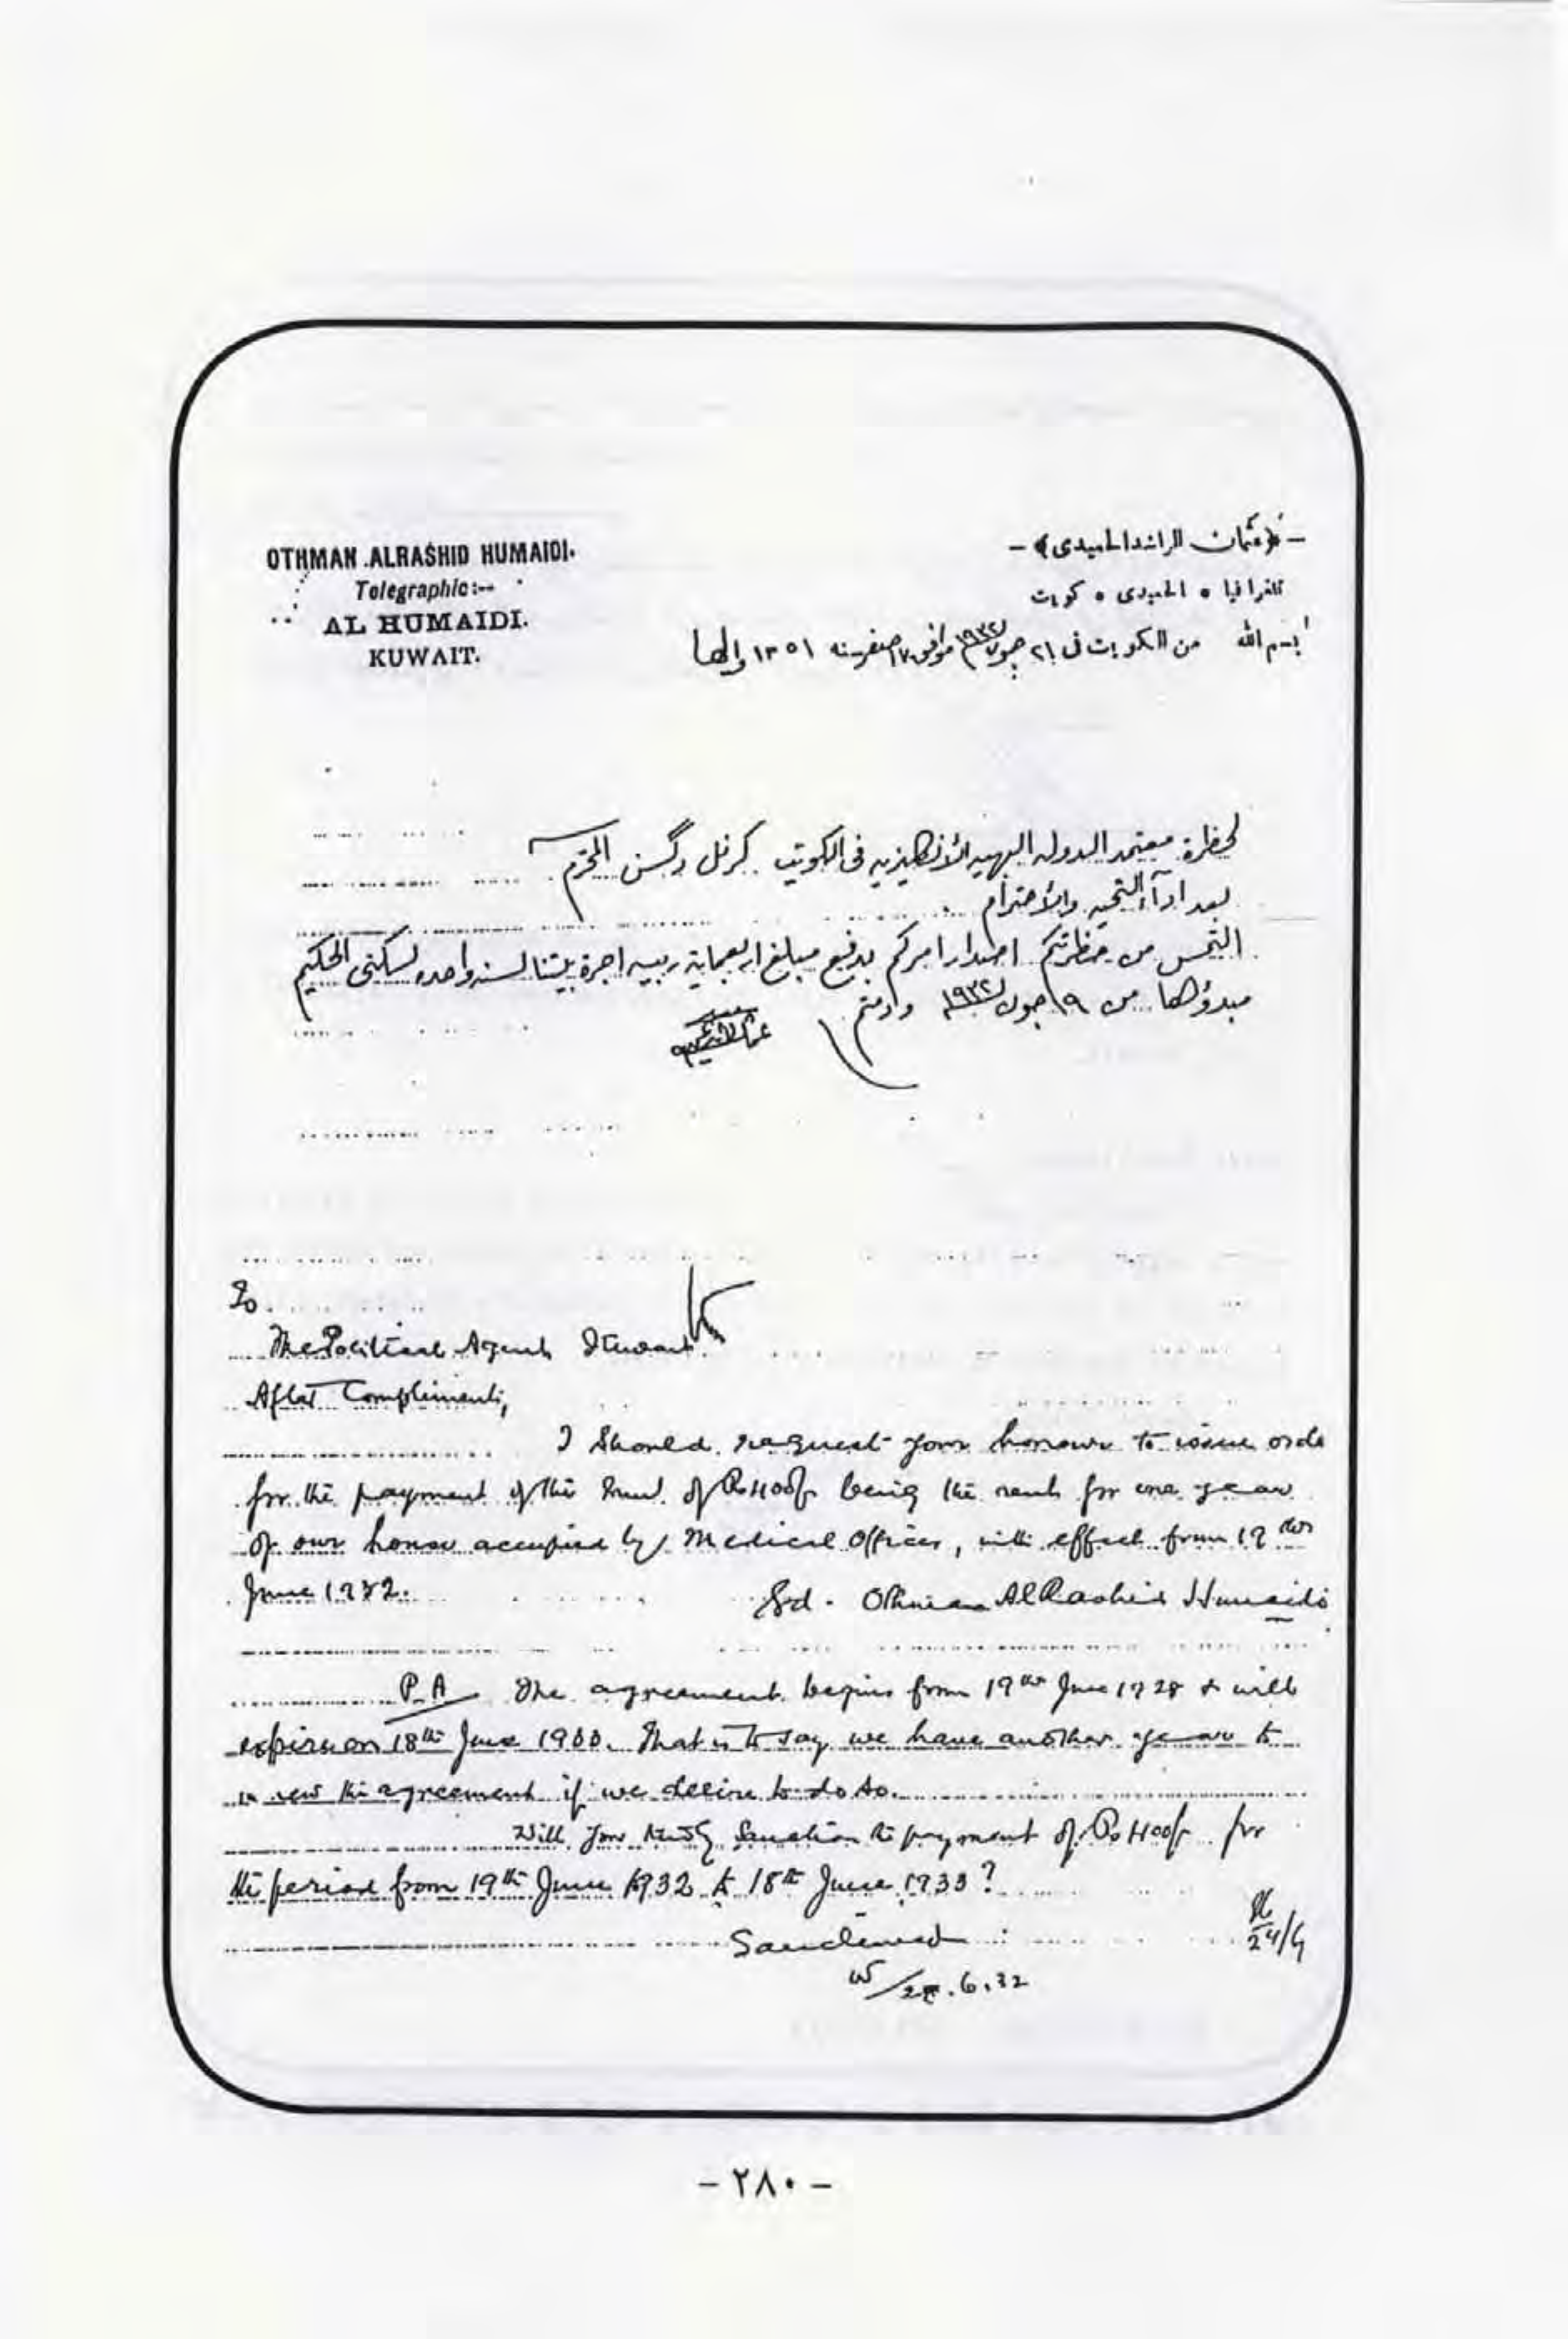 OTHMAN ALRASHID HUMAIDI.
Telegraphic:--
AL HUMAIDI.
KUWAIT.
-﴿عثمان الراشد الحميدي﴾-
تلغرافيا • الحميدي • كويت
بسم الله من الكويت في ٢١ جون ١٩٣٢ موافق ١٧ صفر سنه ١٣٥١
لحظرة معتمد الدوله البهيه الأنكليزيه في الكويت كرنل دكسن المحترم
بعد ادآء التحيه والأحترام
التمس من حظرتكم اصدار امركم بدفع مبلغ اربعماية ربيه اجرة بيتنا لسنه واحده لسكنى الحكيم
مبدؤها من ١٩ جون ١٩٣٢ ودمتم
To
The Political Agent, Kuwait.
After Compliments,
I should request your honour to issue orde
for the payment of the sum of Rs 400/- being the rent for one year
of our house occupied by Medical Officer, with effect from 19th
June 1932.
Sd. Othman AlRashid Humaidi
P.A The agreement begins from 19th June 1928 & will
expire on 18th June 1933. That is to say we have another year to
renew the agreement if we desire to do so.
Will you kindly sanction the payment of Rs 400/- for
the period from 19th June 1932 to 18th June 1933?
24/6
.6.32
- ٢٨٠ -